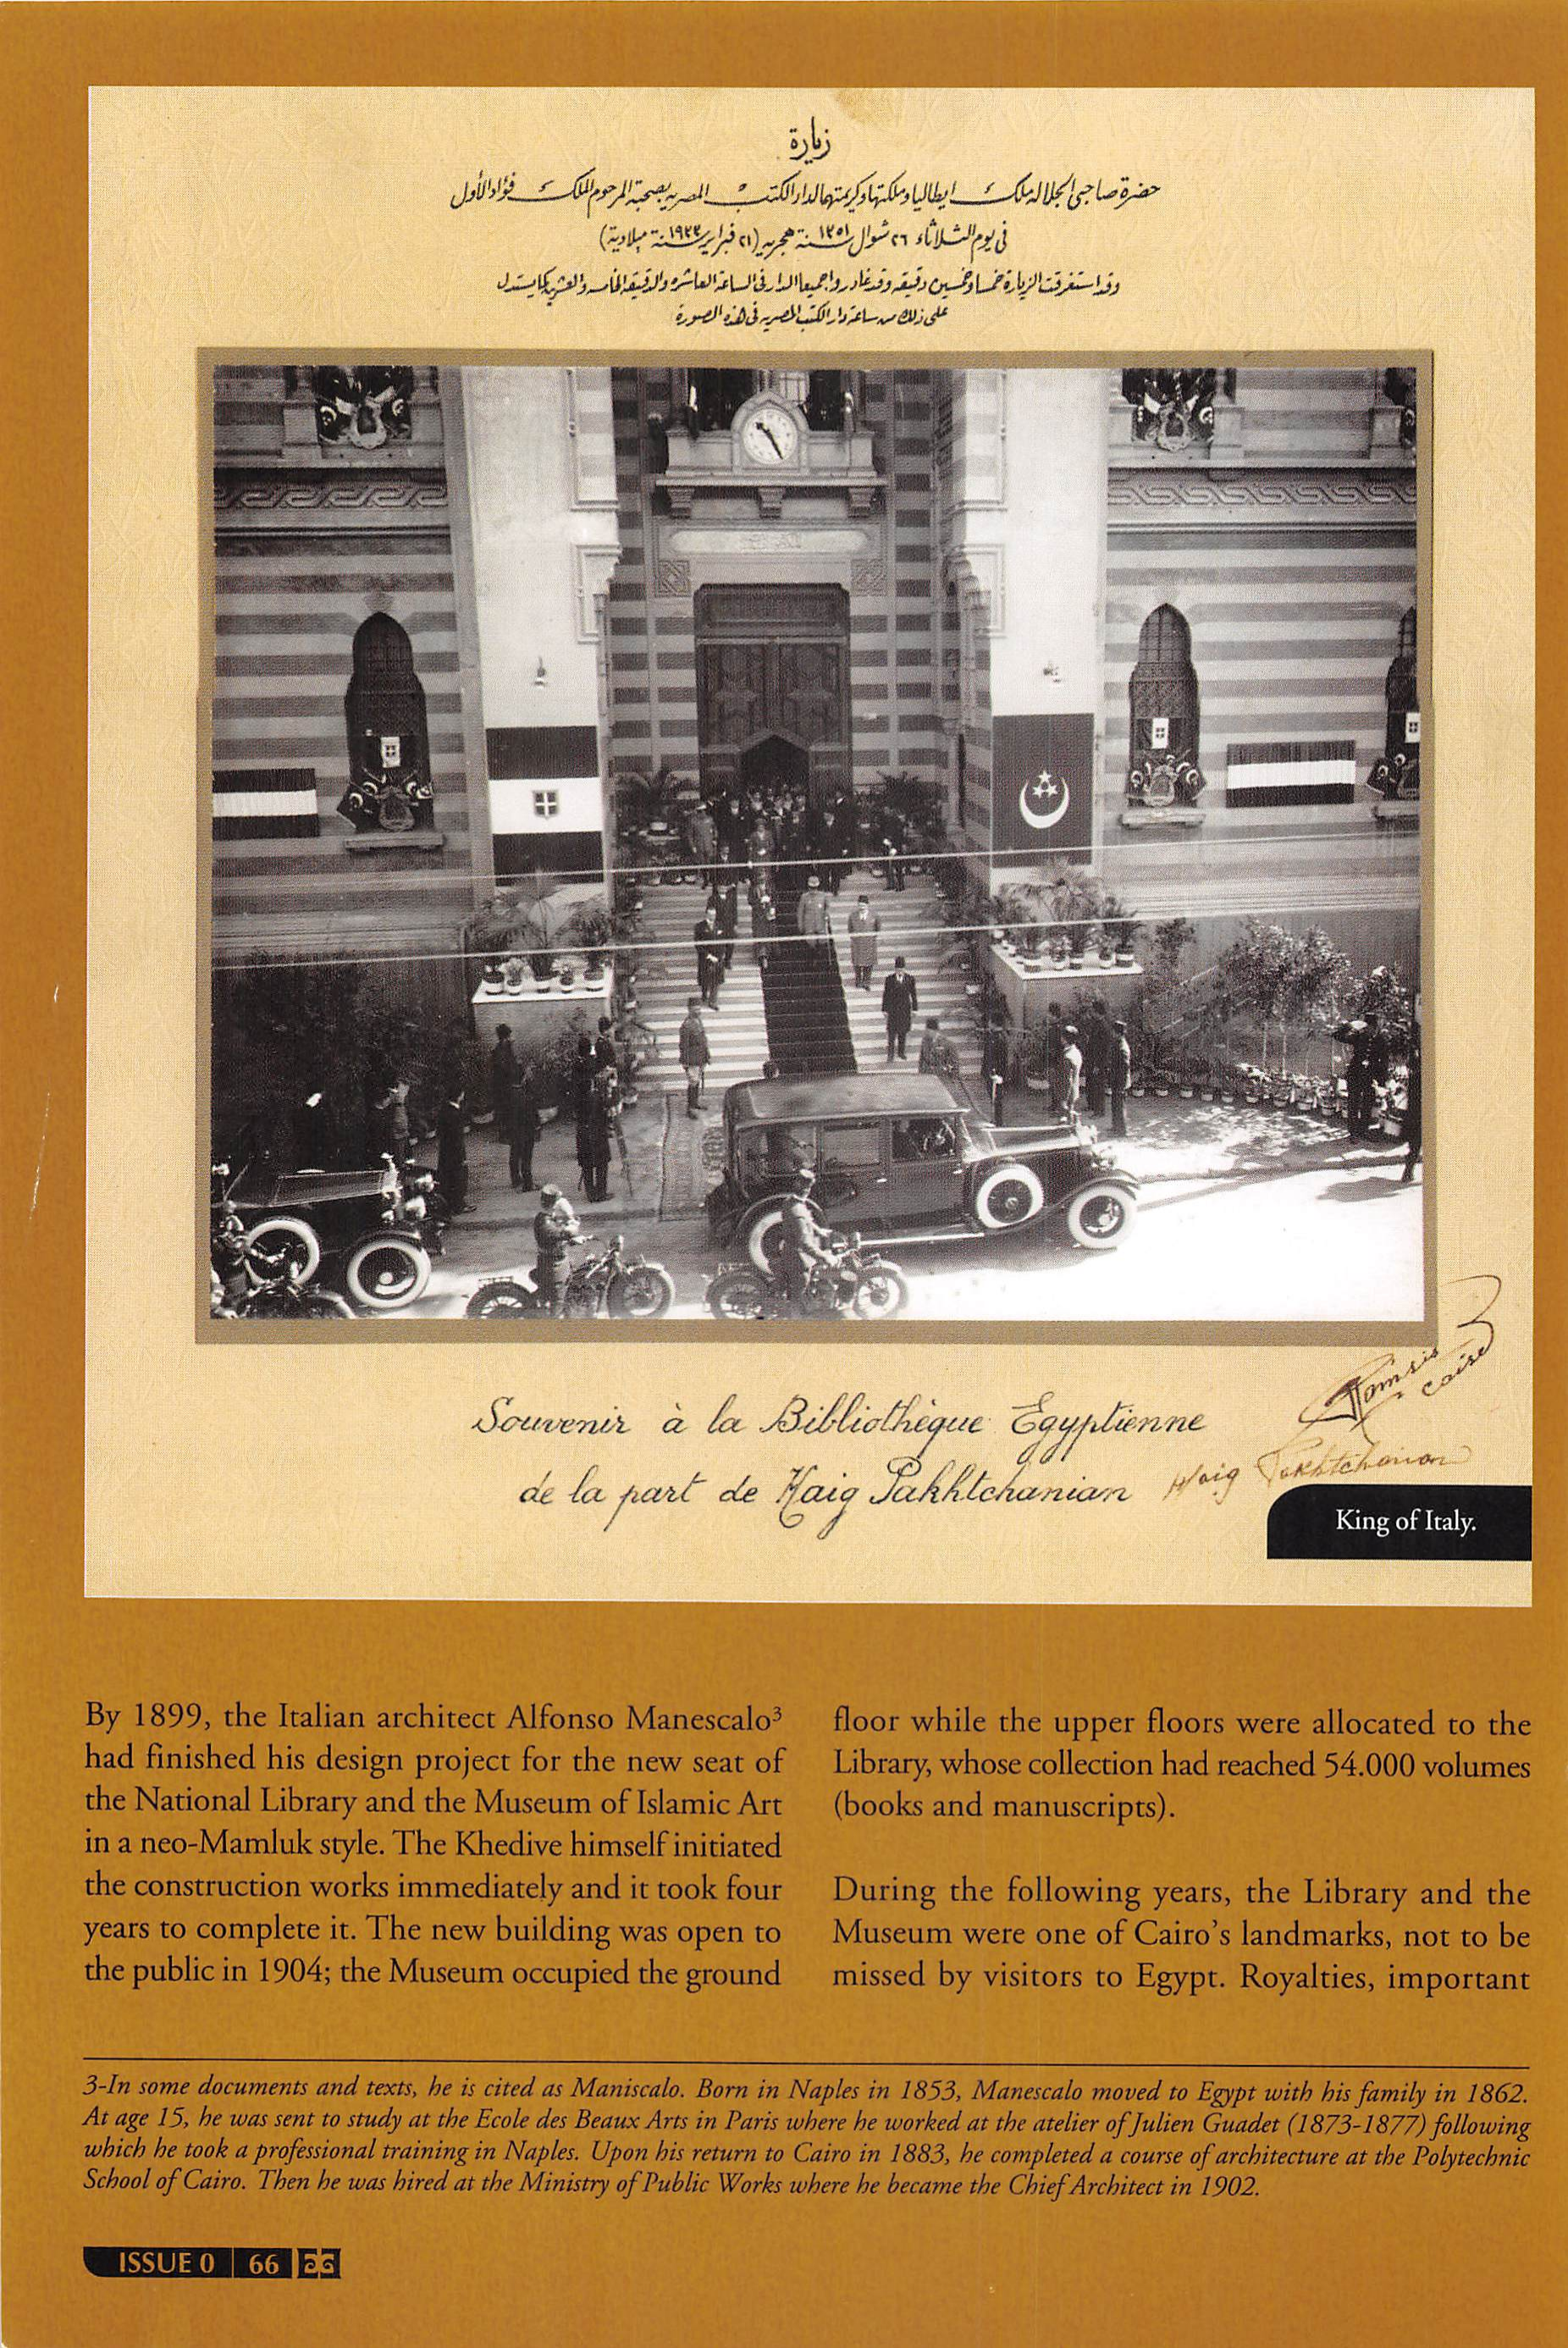 زيارة
حضرة صاحبى الجلالة ملك ايطاليا وملكتها وكريمتهما لدار الكتب المصرية بصحبة المرحوم الملك فؤاد الأول
فى يوم الثلاثاء ٢٦ شوال سنة ١٣٥١ هجرية (٢١ فبراير سنة ١٩٣٣ ميلادية)
وقد استغرقت الزيارة خمسا وخمسين دقيقه وقد غادروا جميعا الدار فى الساعة العاشره والدقيقة الخامسه والعشرين كما يستدل
على ذلك من ساعة دار الكتب المصريه فى هذه الصورة
Souvenir à la Bibliothèque Egyptienne
de la part de Haig Pakhtchanian
Ramsis
Caire
Haig Pakhtchanian
King of Italy.
By 1899, the Italian architect Alfonso Manescalo³
had finished his design project for the new seat of
the National Library and the Museum of Islamic Art
in a neo-Mamluk style. The Khedive himself initiated
the construction works immediately and it took four
years to complete it. The new building was open to
the public in 1904; the Museum occupied the ground
floor while the upper floors were allocated to the
Library, whose collection had reached 54.000 volumes
(books and manuscripts).
During the following years, the Library and the
Museum were one of Cairo's landmarks, not to be
missed by visitors to Egypt. Royalties, important
3-In some documents and texts, he is cited as Maniscalo. Born in Naples in 1853, Manescalo moved to Egypt with his family in 1862.
At age 15, he was sent to study at the Ecole des Beaux Arts in Paris where he worked at the atelier of Julien Guadet (1873-1877) following
which he took a professional training in Naples. Upon his return to Cairo in 1883, he completed a course of architecture at the Polytechnic
School of Cairo. Then he was hired at the Ministry of Public Works where he became the Chief Architect in 1902.
ISSUE 0 | 66